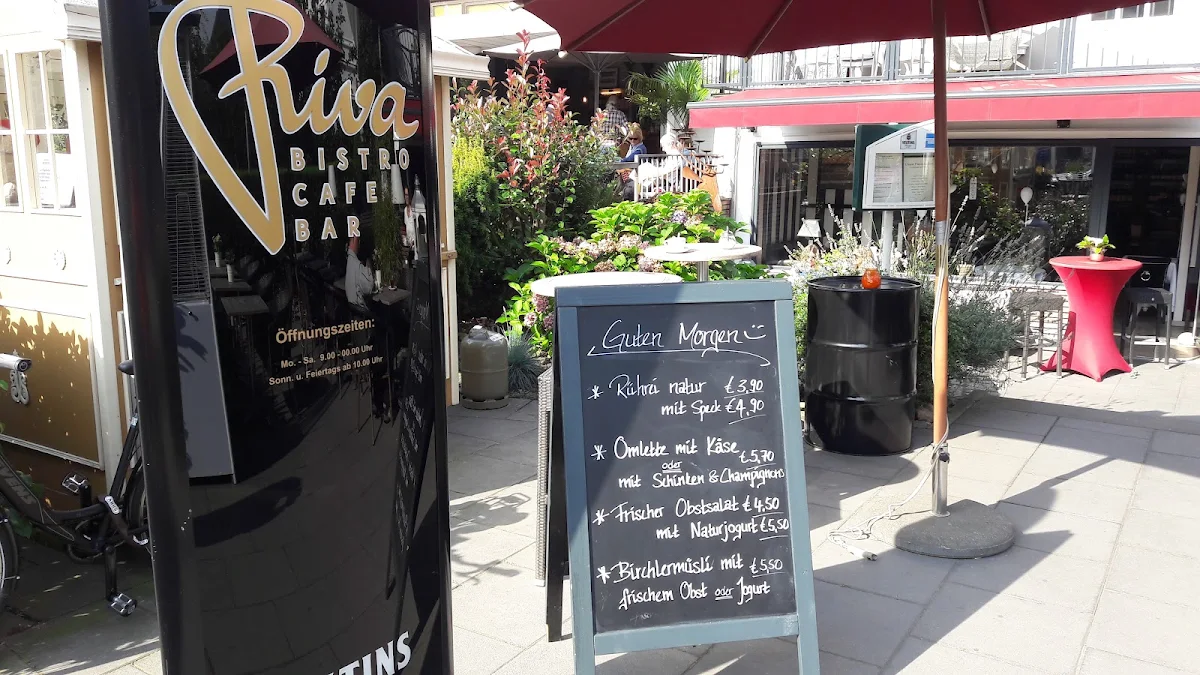 Riva
BISTRO
CAFE
BAR
Öffnungszeiten:
Mo. - Sa. 9.00 -00.00 Uhr
Sonn. u. Feiertags ab 10.00 Uhr
TINS
Guten Morgen
* Rührei natur € 3,90
mit Speck € 4,90
* Omlette mit Käse € 5,70
oder
mit Schinken & Champignons
* Frischer Obstsalat € 4,50
mit Naturjogurt € 5,50
* Birchlermüsli mit € 5,50
frischem Obst oder Jogurt